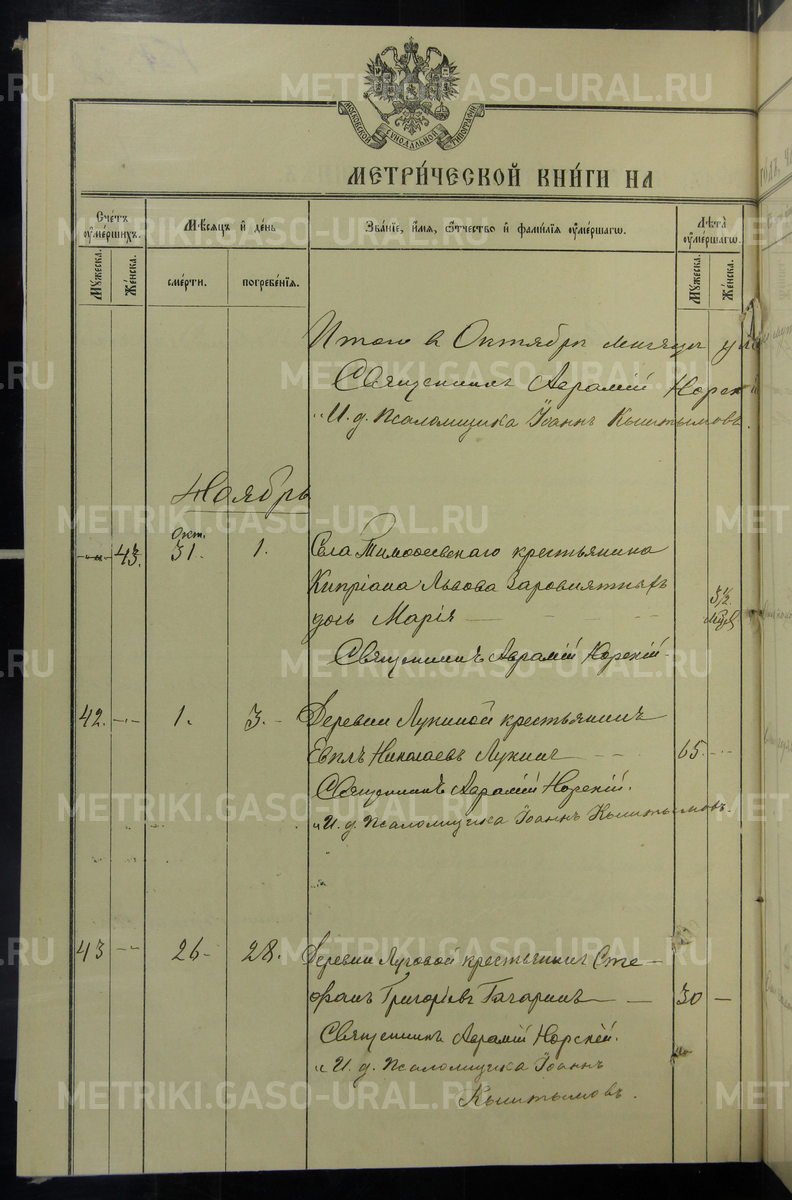 МОСКОВСКОЙ СѴНОДАЛЬНОЙ ТИПОГРАФІИ
МЕТРИ́ЧЕСКОЙ КНИ́ГИ НА
Сче́тъ ᲂу҆ме́ршихъ.
Мꙋ́жеска.
Же́нска.
Мѣ́сѧцъ и҆ де́нь
сме́рти.
погребе́нїѧ.
Зва́нїе, и҆́мѧ, ѻ҆́тчество и҆ фами́лїѧ ᲂу҆ме́ршагѡ.
Лѣ́та ᲂу҆ме́ршагѡ.
Мꙋ́жеска.
Же́нска.
Итого в Октябрѣ месяцѣ
Священникъ Аврамій Норскій
И. д. Псаломщика Іоаннъ Кыштымовъ.
Ноябрь
Окт.
43. 31. 1. Села Тимоѳеевскаго крестьянина
Кипріана Львова Заровнятныхъ
дочь Марія 3½ мѣс.
Священникъ Аврамій Норскій.
42. 1. 3. Деревни Лукиной крестьянинъ
Евплъ Николаевъ Лукинъ 65.
Священникъ Аврамій Норскій.
И. д. Псаломщика Іоаннъ Кыштымовъ.
43 26 28. Деревни Луговой крестьянинъ Сте-
фанъ Григорьевъ Гагаринъ 30
Священникъ Аврамій Норскій.
И. д. Псаломщика Іоаннъ
Кыштымовъ.
METRIKI.GASO-URAL.RU